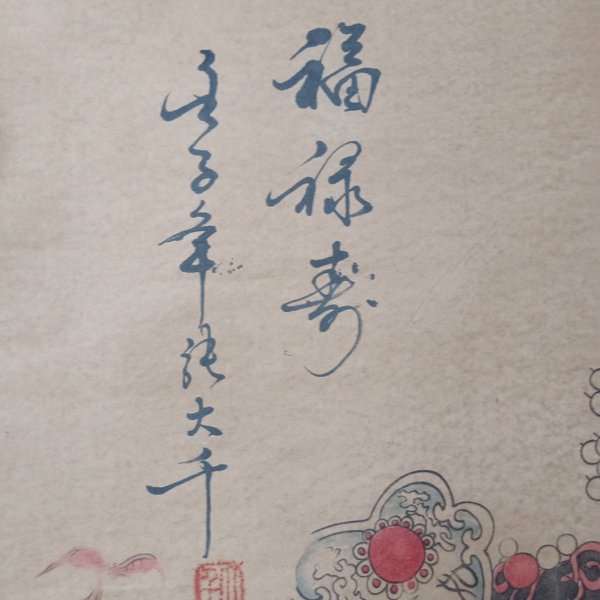 福禄寿
壬子年张大千